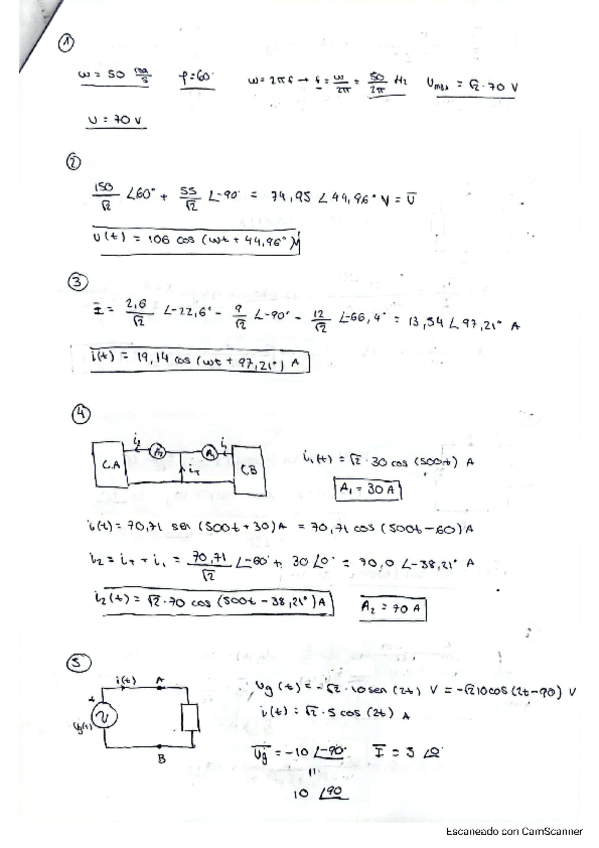 ①
ω = 50 rad/s   φ = 60°   ω = 2πf → f = ω/2π = 50/2π Hz   Umax = √2·70 V
U = 70 V
②
150/√2 ∠60° + 55/√2 ∠-90° = 74,95 ∠44,96° V = U̅
u(t) = 106 cos (ωt + 44,96°) V
③
I̅ = 2,6/√2 ∠-22,6° - 9/√2 ∠-90° - 12/√2 ∠-66,4° = 13,54 ∠97,21° A
i(t) = 19,14 cos (ωt + 97,21°) A
④
i₂ A₂ A₁ i₁
C.A i_T C.B
i₁(t) = √2·30 cos (500t) A
A₁ = 30 A
i(t) = 70,71 sen (500t + 30) A = 70,71 cos (500t - 60) A
i₂ = i_T + i₁ = 70,71/√2 ∠-60° + 30 ∠0° = 70,0 ∠-38,21° A
i₂(t) = √2·70 cos (500t - 38,21°) A   A₂ = 70 A
⑤
i(t) A
+
Ug(t)
B
Ug(t) = -√2·10 sen (2t) V = -√2 10 cos (2t - 90) V
i(t) = √2·5 cos (2t) A
U̅g = -10 ∠-90°   I̅ = 5 ∠0°
=
10 ∠90
Escaneado con CamScanner